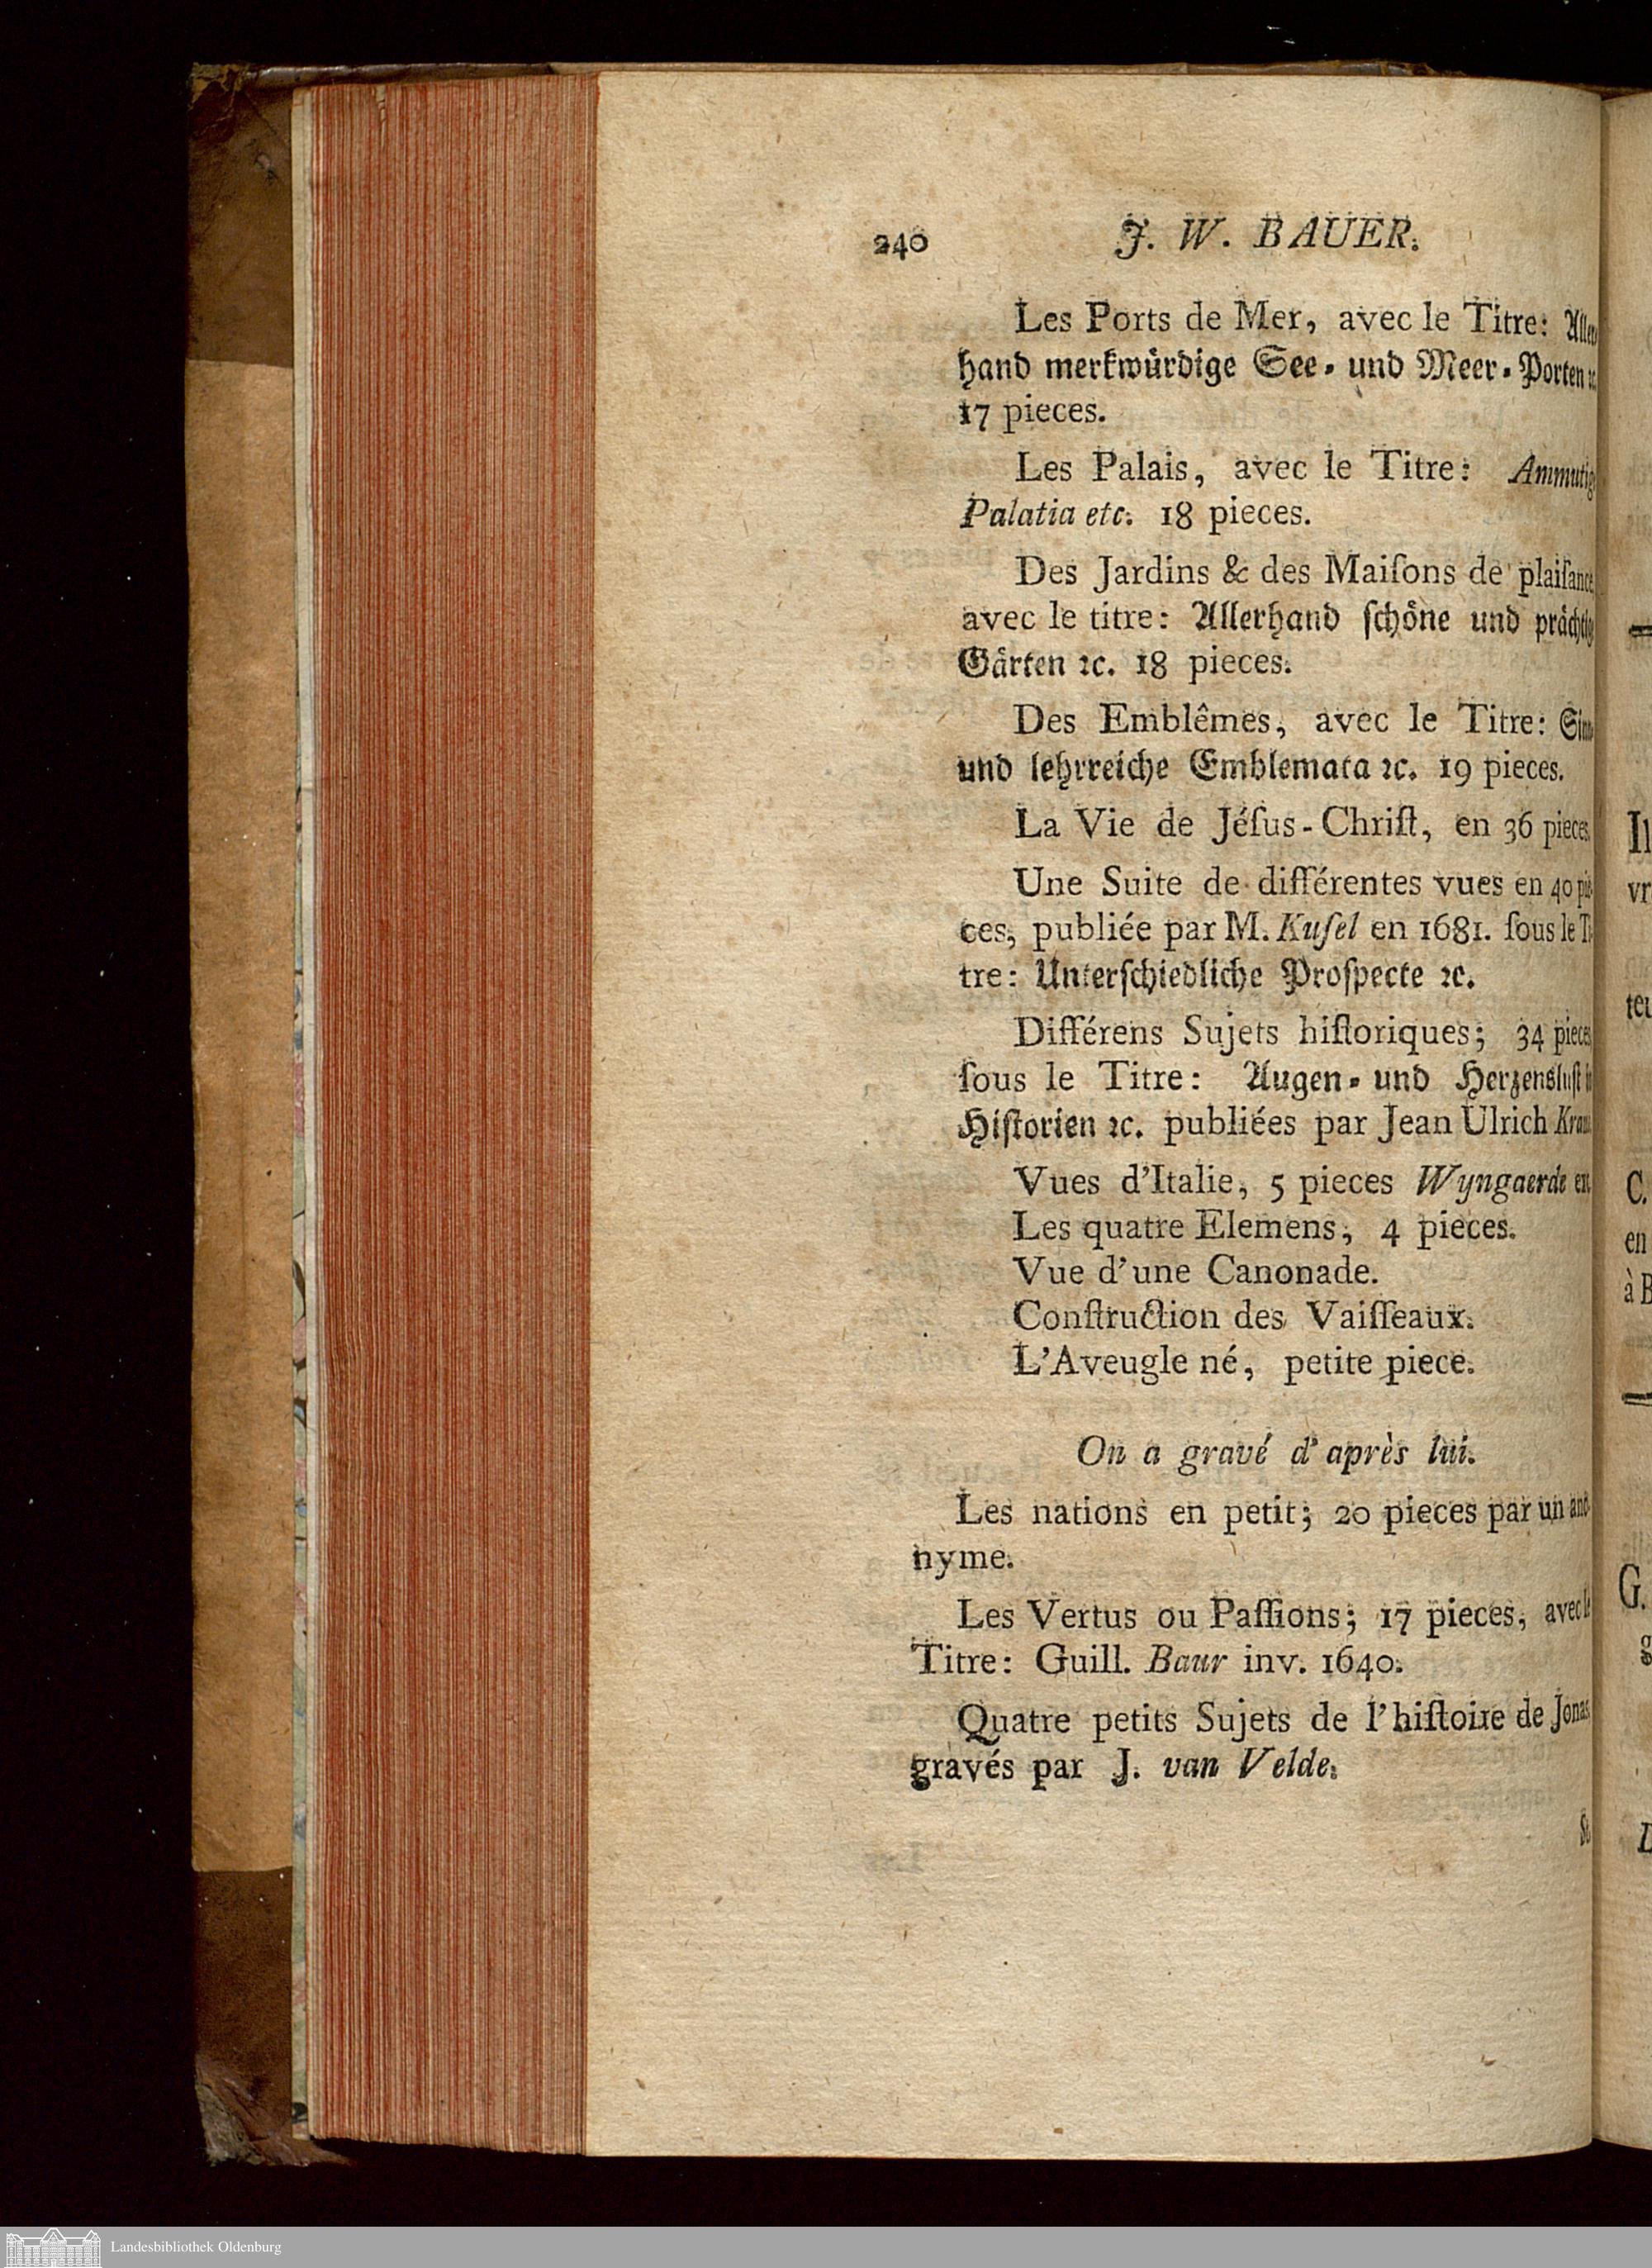 240 J. W. BAUER.
Les Ports de Mer, avec le Titre: Aller
hand merkwürdige See- und Meer-Porten ꝛc.
17 pieces.
Les Palais, avec le Titre: Ammutig
Palatia etc. 18 pieces.
Des Jardins & des Maiſons de plaiſance
avec le titre: Allerhand ſchöne und prächtig
Gärten ꝛc. 18 pieces.
Des Emblêmes, avec le Titre: Sinn
und lehrreiche Emblemata ꝛc. 19 pieces.
La Vie de Jéſus-Chriſt, en 36 pieces
Une Suite de différentes vues en 40 pie
ces, publiée par M. Kuſel en 1681. ſous le Ti
tre: Unterſchiedliche Proſpecte ꝛc.
Différens Sujets hiſtoriques; 34 pieces
ſous le Titre: Augen- und Herzensluſt in
Hiſtorien ꝛc. publiées par Jean Ulrich Kraus
Vues d'Italie, 5 pieces Wyngaerde
Les quatre Elemens, 4 pieces.
Vue d'une Canonade.
Conſtruction des Vaiſſeaux.
L'Aveugle né, petite piece.
On a gravé d'après lui.
Les nations en petit; 20 pieces par un ano
nyme.
Les Vertus ou Paſſions; 17 pieces, avec le
Titre: Guill. Baur inv. 1640.
Quatre petits Sujets de l'hiſtoire de Jonas
gravés par J. van Velde.
Il
vr
C.
en
à B
G.
Landesbibliothek Oldenburg